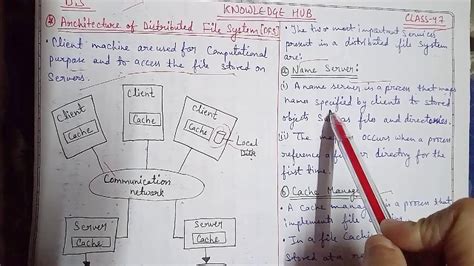 DS
KNOWLEDGE HUB
CLASS-47
Architecture of Distributed File System [DFS]
• Client machine are used for Computational
purpose and to access the file stored on
Servers.
Client
Cache
Client
Cache
Client
Cache
Local
Disk
Communication
network
Server
Cache
Server
Cache
• The two most important Services
present in a distributed file system
are:
Name Server:
(i) A name server is a process that maps
names specified by clients to stored
objects as files and directories.
(ii) The occurs when a process
reference a or directory for the
first time.
Cache Manag
• A Cache mana is a process that
implements file
• In a file Caching
Stored at a